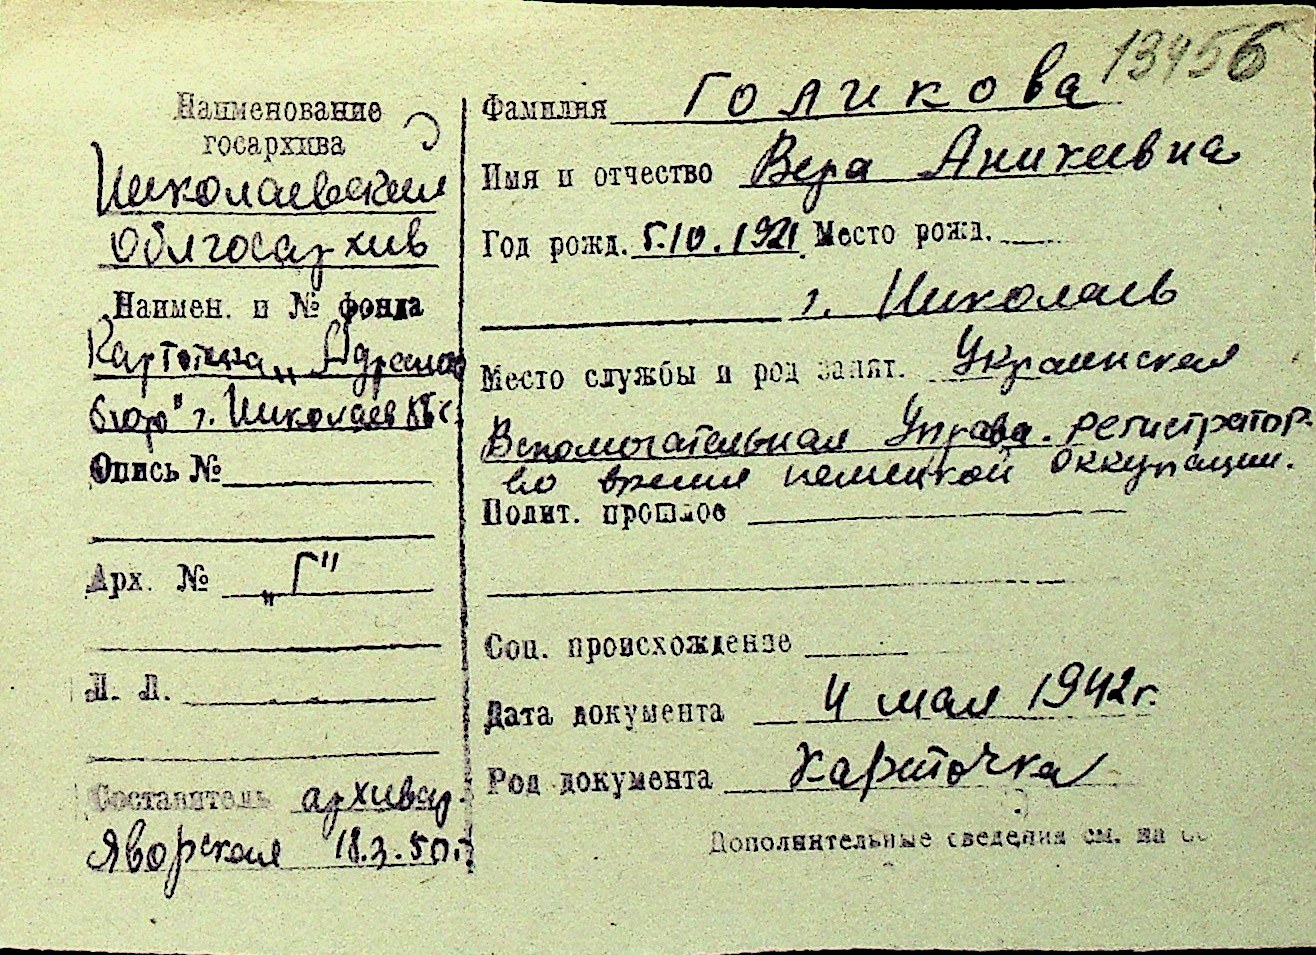 13456
Наименование
госархива
Николаевский
Облгосархив
Наимен. и № фонда
Картотека „Адресное
бюро" г. Николаев
Опись №
Арх. № „Г"
Л. Л.
Составитель архивар.
Яворская 18.3.50г.
Фамилия Голикова
Имя и отчество Вера Аникеевна
Год рожд. 5.10.1921 Место рожд.
г. Николаев
Место службы и род занят. Украинская
Вспомогательная Управа. регистратор.
во время немецкой оккупации.
Полит. прошлое
Соц. происхождение
Дата документа 4 мая 1942г.
Род документа Карточка
Дополнительные сведения см. на